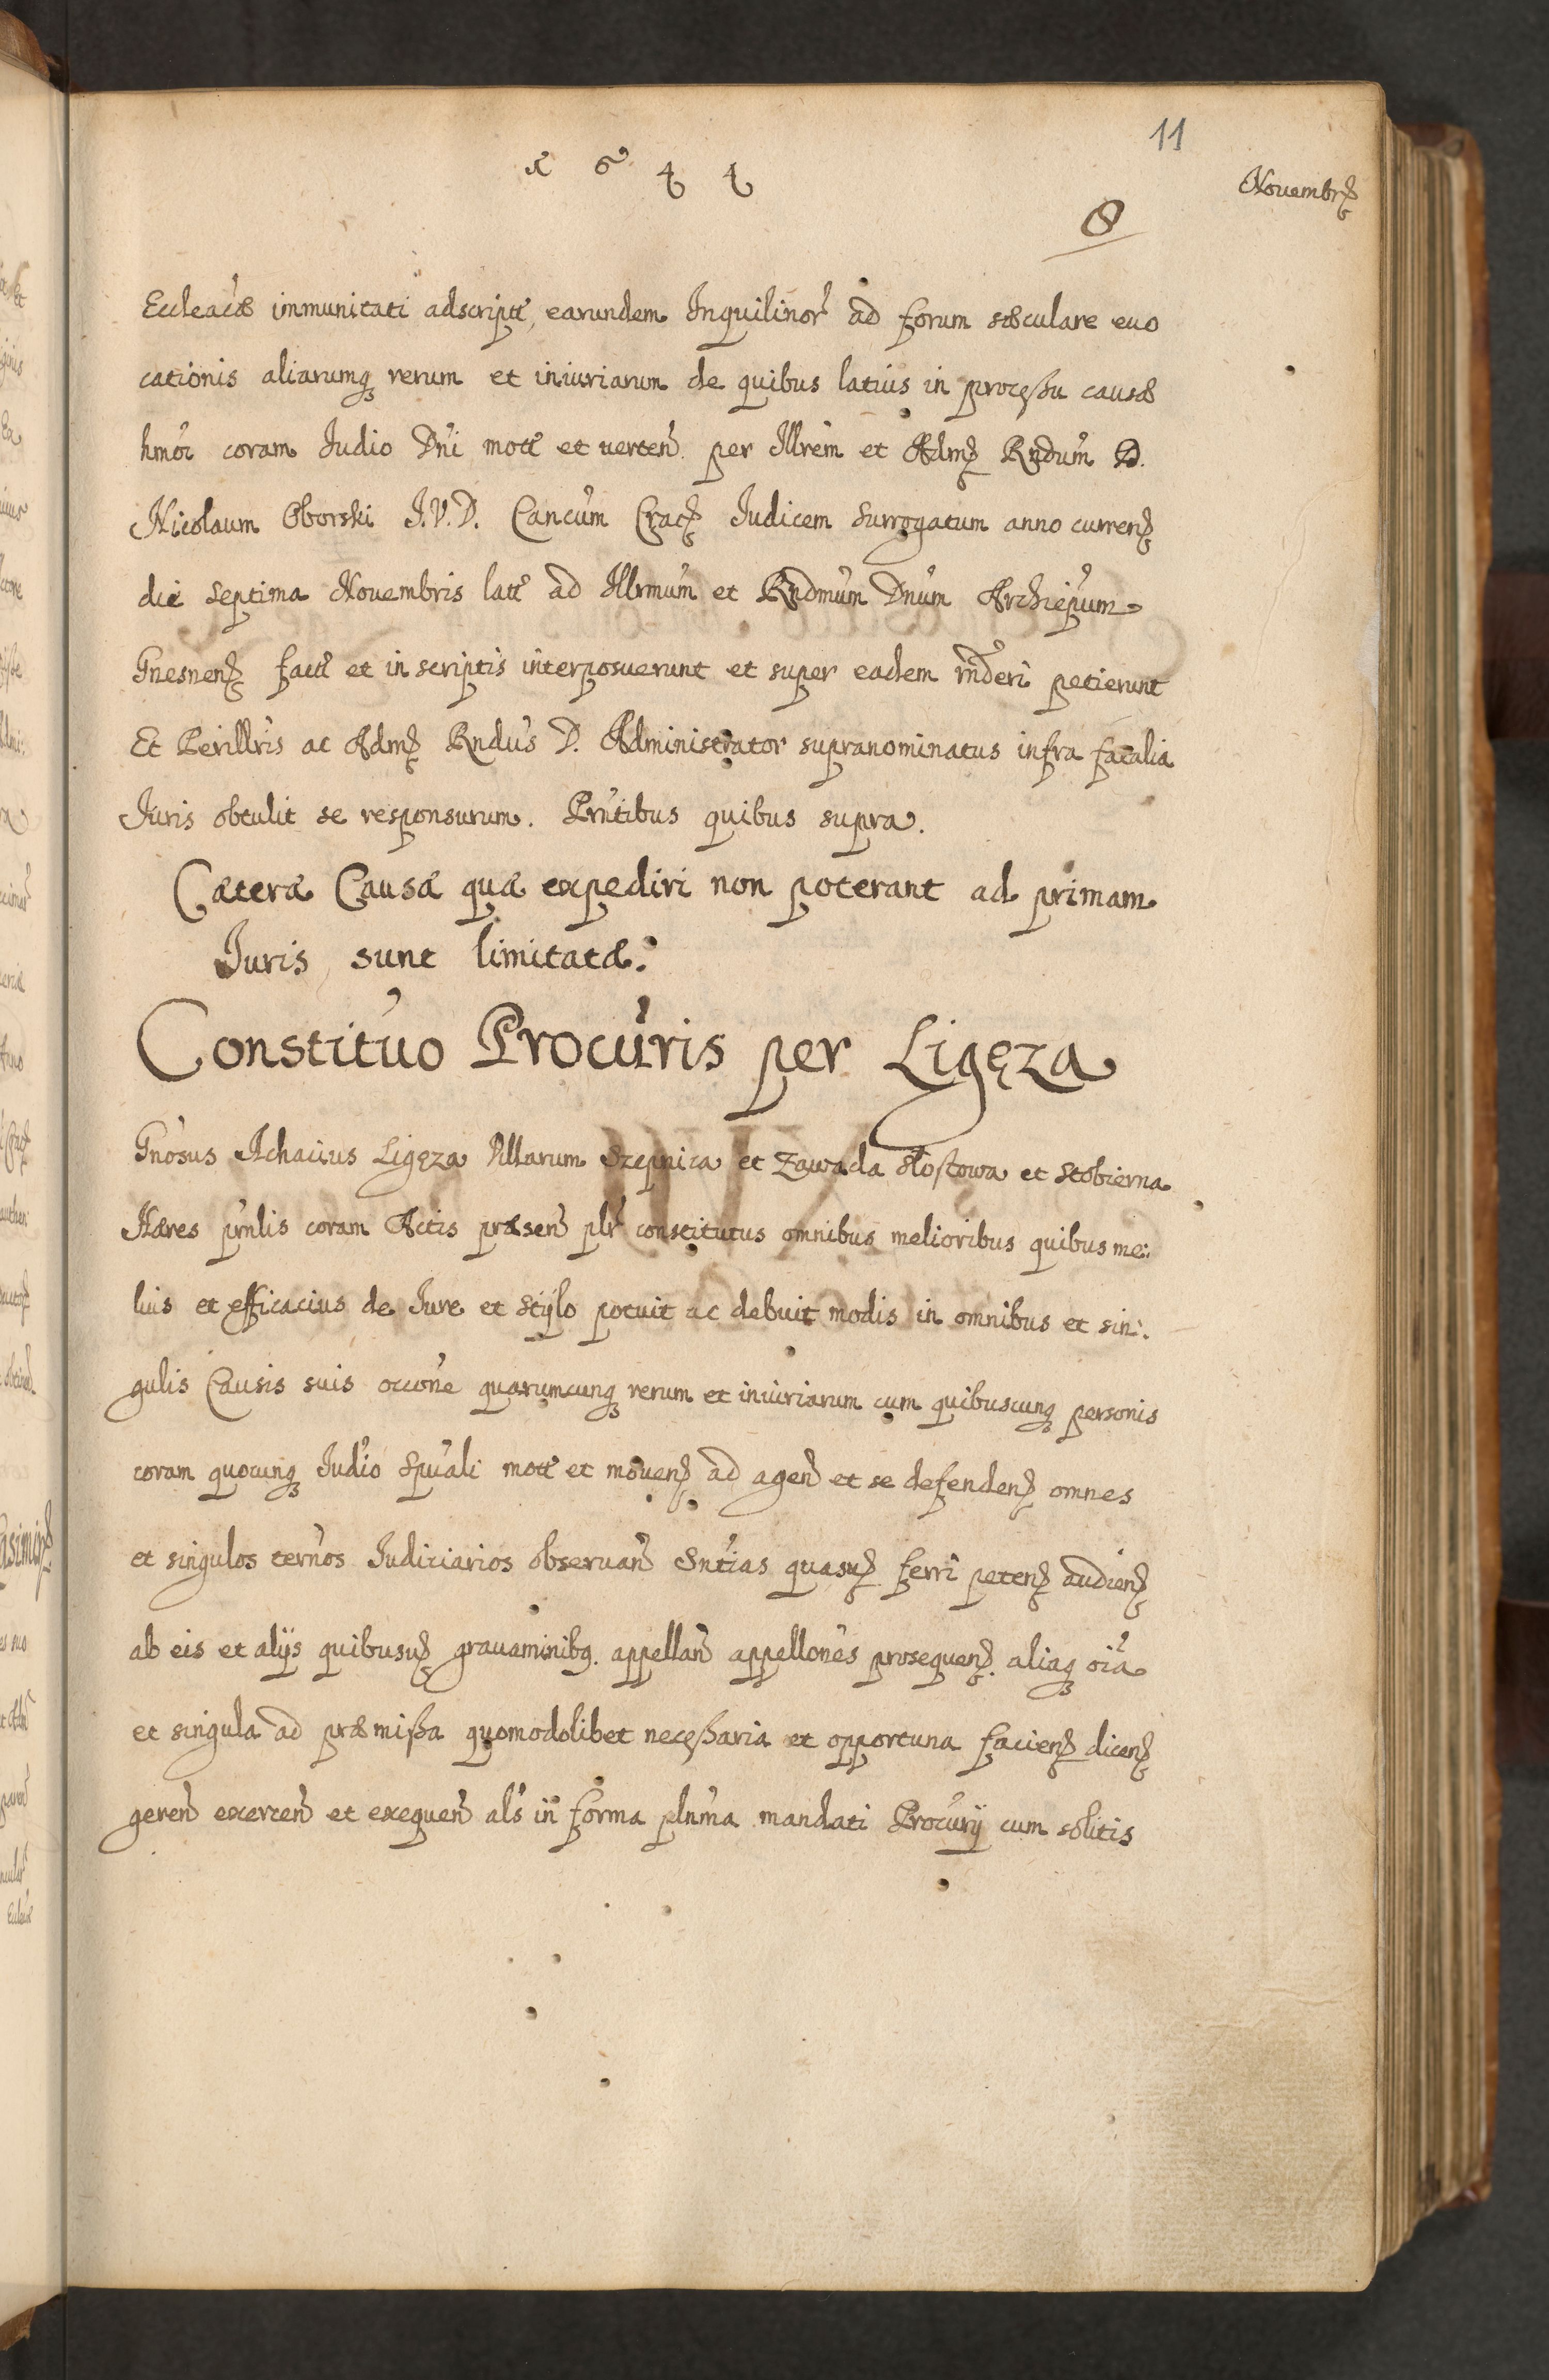 11
1644
Novembr
8
Eccleacæ immunitati adscript, earundem Inquilinor ad forum sæculare evo
cationis aliarumq rerum et iniuriarum de quibus latius in processu causæ
hmoi coram Iudio Dni mott et verten. per Illrem et Adm Rndum D.
Nicolaum Oborski J.V.D. Cancum Crac Iudicem Surrogatum anno curren
die septima Novembris latt ad Illrmum et Rndmum Dnum Archiepum
Gnesnen fact et in scriptis interposuerunt et super eadem rnderi petierunt
Et Perillris ac Adm Rndus D. Administrator supranominatus infra fatalia
Iuris obtulit se responsurum. Prntibus quibus supra.
Cæteræ Causæ quæ expediri non poterant ad primam
Iuris sunt limitatæ.
Constituo Procuris per Ligęza
Gnosus Achacius Ligęza Villarum Szepnica et Zawada Słostowa et Stobierna
Hæres prnlis coram Actis præsen plr constitutus omnibus melioribus quibus me:
lius et efficacius de Iure et stylo potuit ac debuit modis in omnibus et sin:
gulis Causis suis occone quarumcunq rerum et iniuriarum cum quibuscunq personis
coram quocunq Iudio Spuali mott et moven ad agen et se defenden omnes
et singulos ternos Iudiciarios observan Sntias quasvis ferri peten audien
ab eis et alijs quibusvis gravaminibq. appellan appellones prosequen. aliaq oia
et singula ad præmissa quomodolibet necessaria et opportuna facien dicen
geren exercen et exequen als in forma plnma mandati Procurij cum solitis